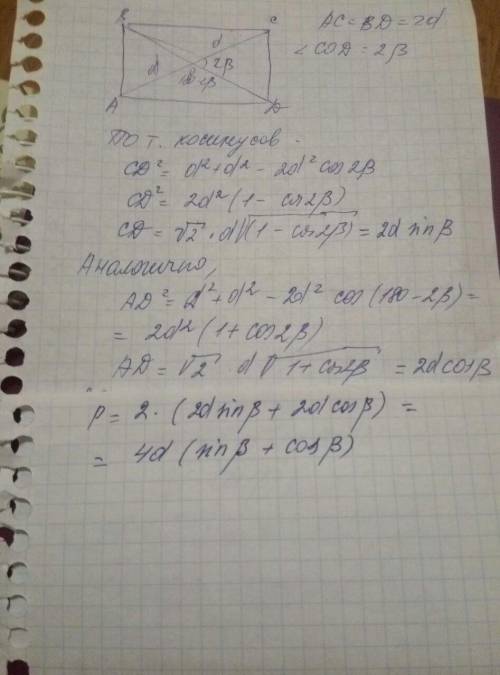 AC = BD = 2d
∠ COD = 2β
B
C
d
2β
d
180-2β
A
D
По т. косинусов -
CD² = d² + d² - 2d² cos 2β
CD² = 2d² (1 - cos 2β)
CD = √2 · d √(1 - cos 2β) = 2d sin β
Аналогично,
AD² = d² + d² - 2d² cos (180 - 2β) =
= 2d² (1 + cos 2β)
AD = √2 d √1 + cos 2β = 2d cos β
P = 2 · (2d sin β + 2d cos β) =
= 4d (sin β + cos β)